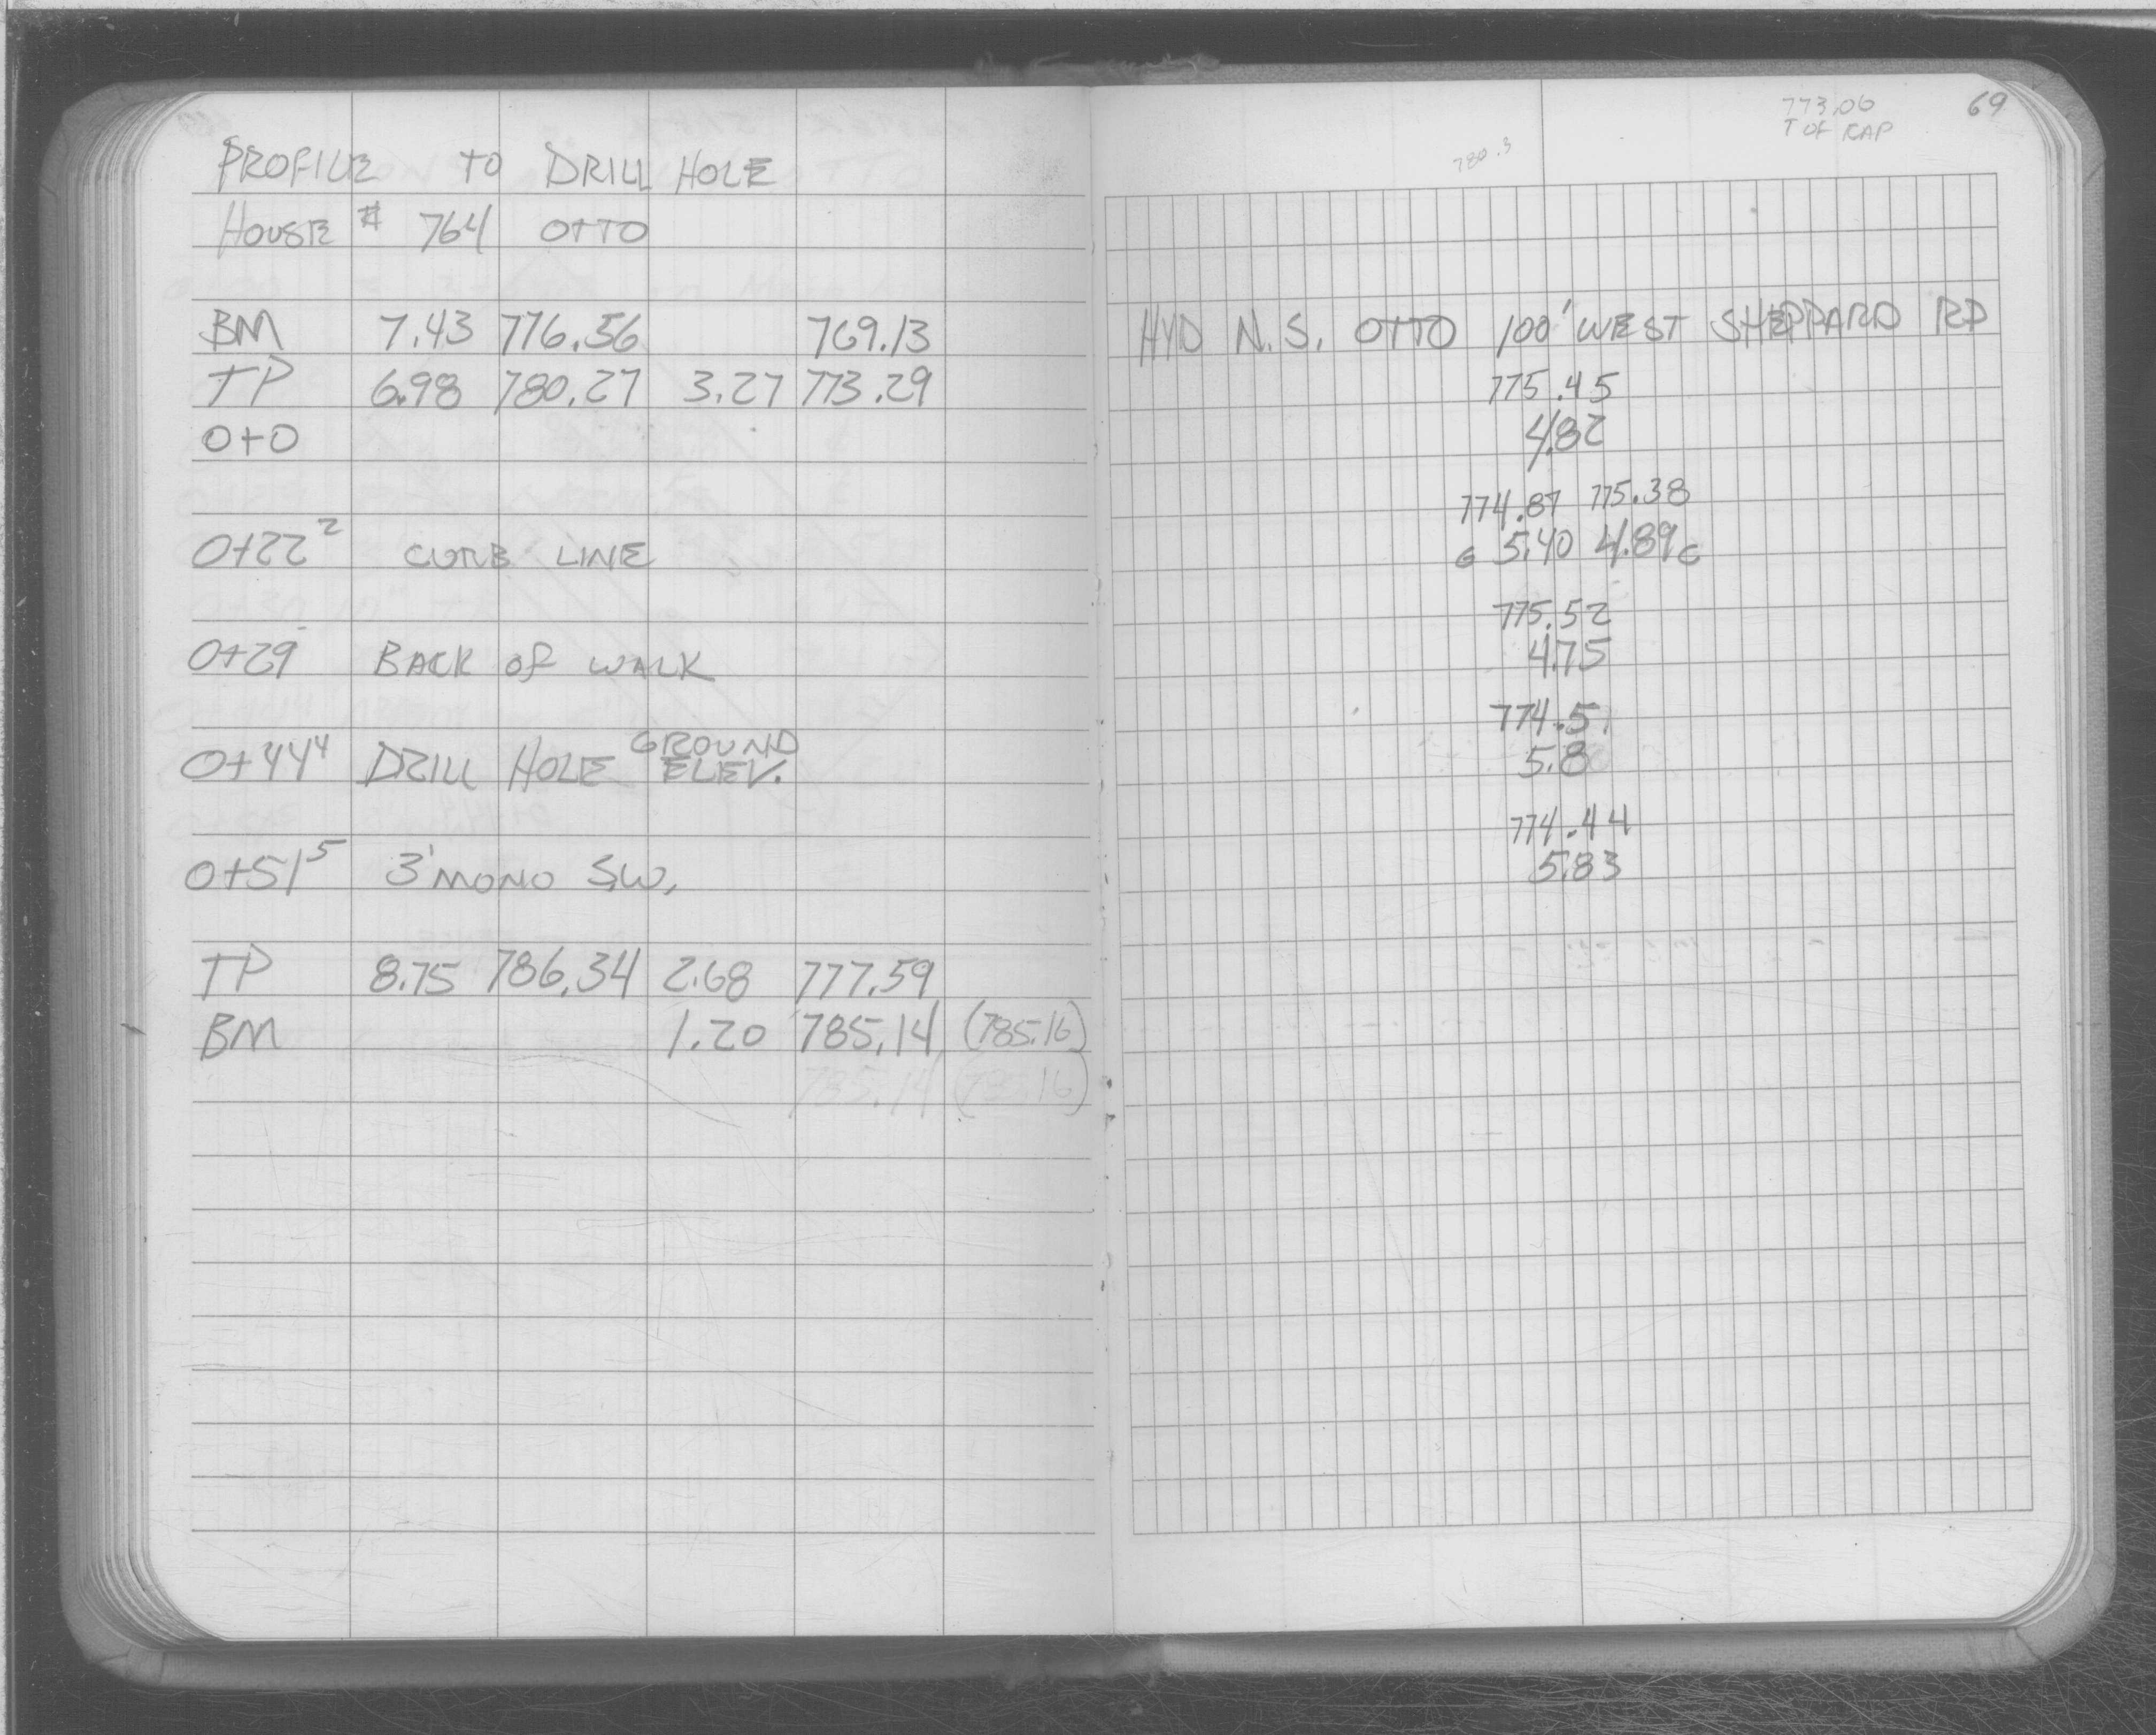 PROFILE TO DRILL HOLE
HOUSE # 764 OTTO
BM 7.43 776.56 769.13
TP 6.98 780.27 3.27 773.29
0+0
0+22² CURB LINE
0+29 BACK OF WALK
0+44⁴ DRILL HOLE GROUND ELEV.
0+51⁵ 3' MONO S.W.
TP 8.75 786.34 2.68 777.59
BM 1.20 785.14 (785.16)
785.14 (785.16)
69
773.06
T OF CAP
780.3
HYD N.S. OTTO 100' WEST SHEPPARD RD
775.45
4.82
774.87 775.38
G 5.40 4.89 C
775.52
4.75
774.5
5.8
774.44
5.83